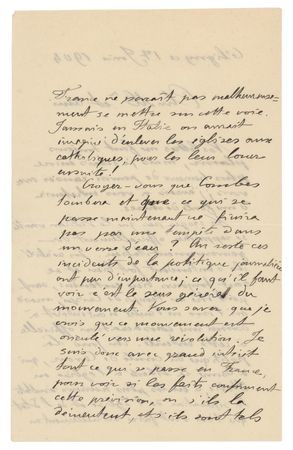 France ne paraît pas malheureuse-
ment se mettre sur cette voie.
Jamais en Italie on aurait
imaginé d'enlever les églises aux
catholiques, pour les leur louer
ensuite!
Croyez-vous que Combes
tombera et que ce qui se
passe maintenant ne finira
pas par une tempête dans
un verre d'eau? Au reste ces
incidents de la politique journalière
ont peu d'importance; ce qu'il faut
voir c'est le sens général du
mouvement. Vous savez que je
crois que ce mouvement est
orienté vers une révolution. Je
suis donc avec grand intérêt
tout ce qui se passe en France,
pour voir si les faits confirment
cette prévision, ou s'ils la
démentent, et s'ils sont tels